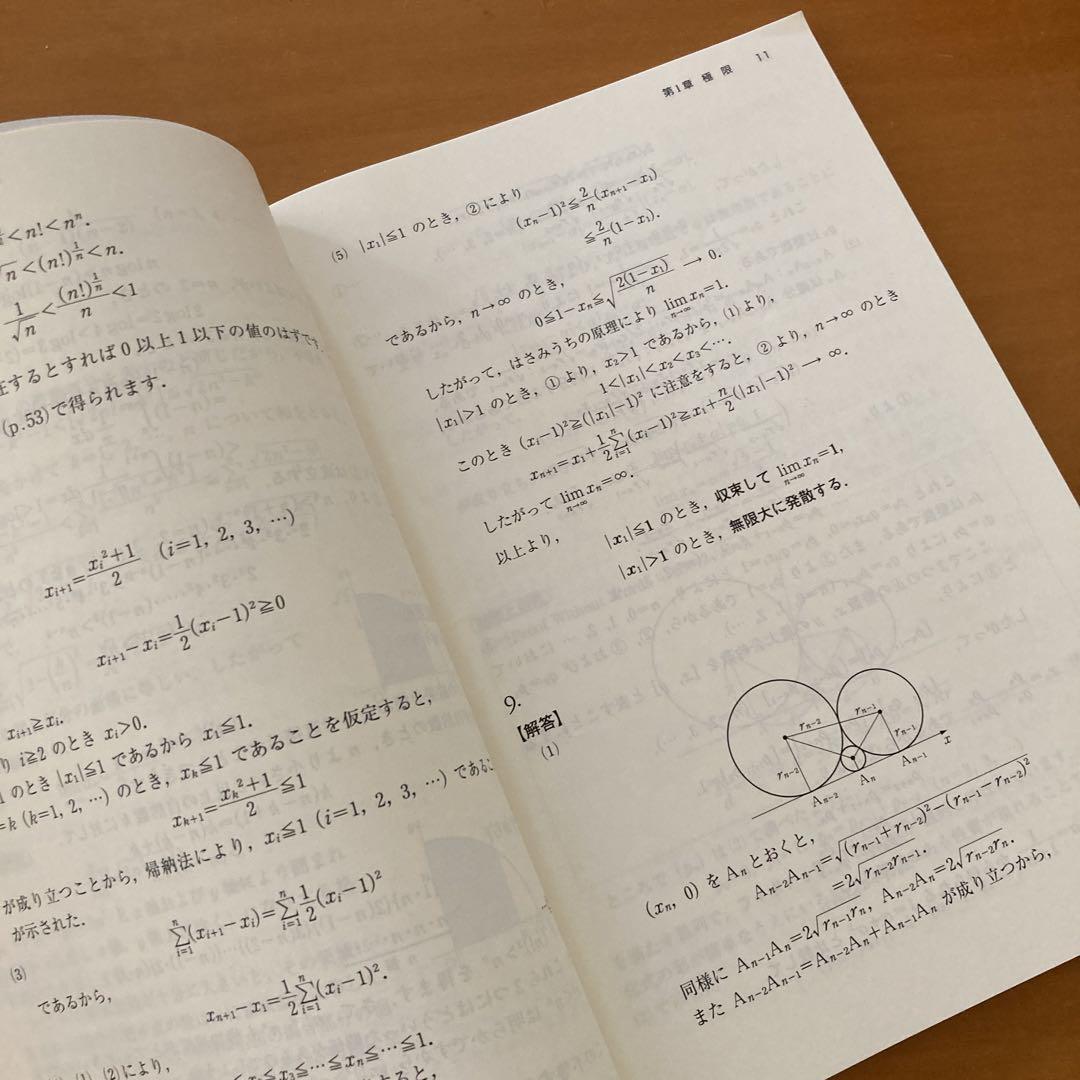 <n!<nⁿ.
√n<(n!)^{1/n}<n.
1/√n<(n!)^{1/n}/n<1
在するとすれば0以上1以下の値のはずです.
(p.53)で得られます.
x_{i+1}=(x_i²+1)/2 (i=1, 2, 3, …)
x_{i+1}-x_i=1/2(x_i-1)²≧0
x_{i+1}≧x_i.
り i≧2 のとき x_i>0.
1 のとき |x_1|≦1 であるから x_1≦1.
=k (k=1, 2, …) のとき, x_k≦1 であることを仮定すると,
x_{k+1}=(x_k²+1)/2≦1
が成り立つことから, 帰納法により, x_i≦1 (i=1, 2, 3, …) であるこ
が示された.
(3)
Σ_{i=1}^{n}(x_{i+1}-x_i)=Σ_{i=1}^{n}1/2(x_i-1)²
であるから,
x_{n+1}-x_1=1/2Σ_{i=1}^{n}(x_i-1)².
(1), (2)により,
≦x_3≦…≦x_n≦…≦1.
第1章 極限 11
(5) |x_1|≦1 のとき, ②により
(x_n-1)²≦2/n(x_{n+1}-x_1)
≦2/n(1-x_1).
であるから, n→∞ のとき,
0≦1-x_n≦√(2(1-x_1)/n) → 0.
したがって, はさみうちの原理により lim_{n→∞}x_n=1.
|x_1|>1 のとき, ①より, x_2>1 であるから, (1)より,
1<|x_1|<x_2<x_3<….
このとき (x_i-1)²≧(|x_1|-1)² に注意をすると, ②より, n→∞ のとき
x_{n+1}=x_1+1/2Σ_{i=1}^{n}(x_i-1)²≧x_1+n/2(|x_1|-1)² → ∞.
したがって lim_{n→∞}x_n=∞.
以上より, |x_1|≦1 のとき, 収束して lim_{n→∞}x_n=1,
|x_1|>1 のとき, 無限大に発散する.
9.
【解答】
(1)
r_{n-2} r_{n-1}
r_{n-2} r_{n-1} x
A_{n-2} A_n A_{n-1}
(x_n, 0) を A_n とおくと,
A_{n-2}A_{n-1}=√((r_{n-1}+r_{n-2})²-(r_{n-1}-r_{n-2})²)
=2√(r_{n-2}r_{n-1}).
同様に A_{n-1}A_n=2√(r_{n-1}r_n), A_{n-2}A_n=2√(r_{n-2}r_n).
また A_{n-2}A_{n-1}=A_{n-2}A_n+A_{n-1}A_n が成り立つから,